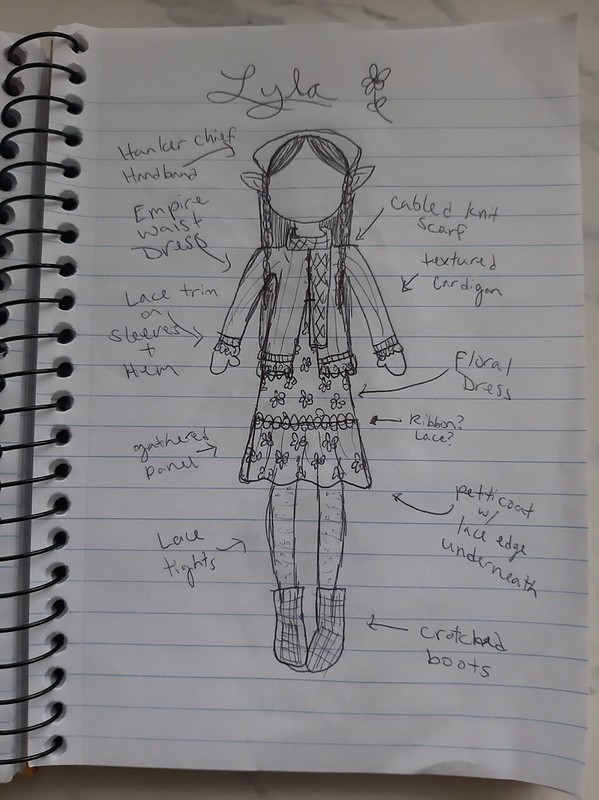 Lyla
Hanker chief
Handband
Empire
Waist
Dress
Lace trim
on
sleeves
+
Hem
gathered
panel
Lace
tights
cabled knit
scarf
textured
cardigan
Floral
Dress
Ribbon?
Lace?
petticoat
w/
lace edge
underneath
crotched
boots